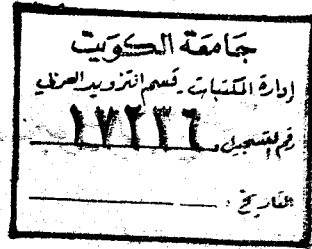 جامعة الكويت
إدارة المكتبات - قسم التزويد العربي
رقم التسجيل ١٧٢٣٦
التاريخ :